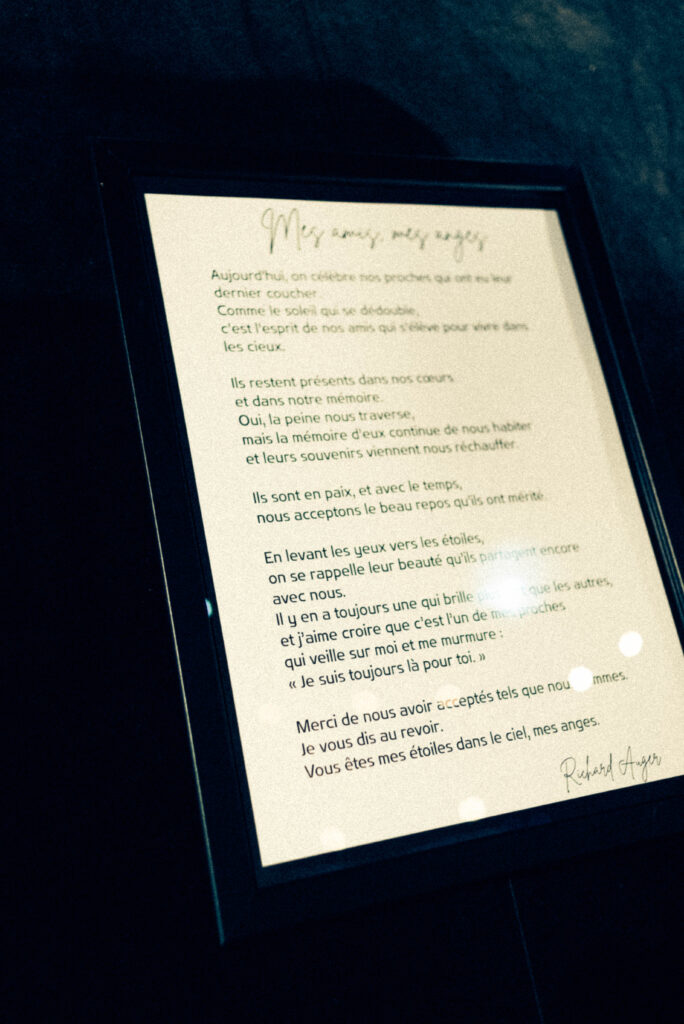 Mes amis, mes anges
Aujourd'hui, on célèbre nos proches qui ont eu leur
dernier coucher.
Comme le soleil qui se dédouble,
c'est l'esprit de nos amis qui s'élève pour vivre dans
les cieux.
Ils restent présents dans nos cœurs
et dans notre mémoire.
Oui, la peine nous traverse,
mais la mémoire d'eux continue de nous habiter
et leurs souvenirs viennent nous réchauffer.
Ils sont en paix, et avec le temps,
nous acceptons le beau repos qu'ils ont mérité.
En levant les yeux vers les étoiles,
on se rappelle leur beauté qu'ils partagent encore
avec nous.
Il y en a toujours une qui brille que les autres,
et j'aime croire que c'est l'un de mes proches
qui veille sur moi et me murmure :
« Je suis toujours là pour toi. »
Merci de nous avoir acceptés tels que nous sommes.
Je vous dis au revoir.
Vous êtes mes étoiles dans le ciel, mes anges.
Richard Auger